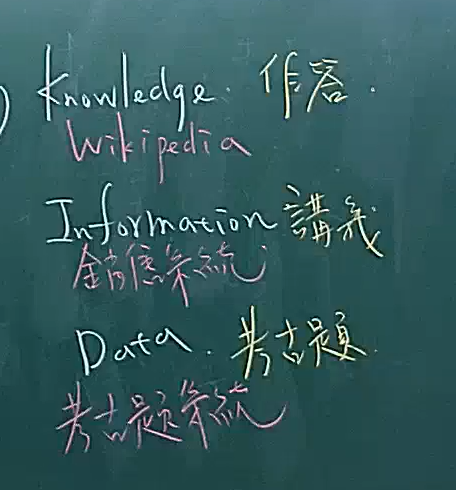 Knowledge. 作答.
Wikipedia
Information 講義
銷售系統
Data. 考古題.
考古題系統